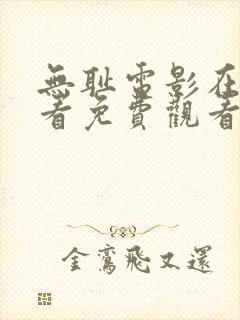 無耻雷影在
看免費觀看
金鸞飛又還